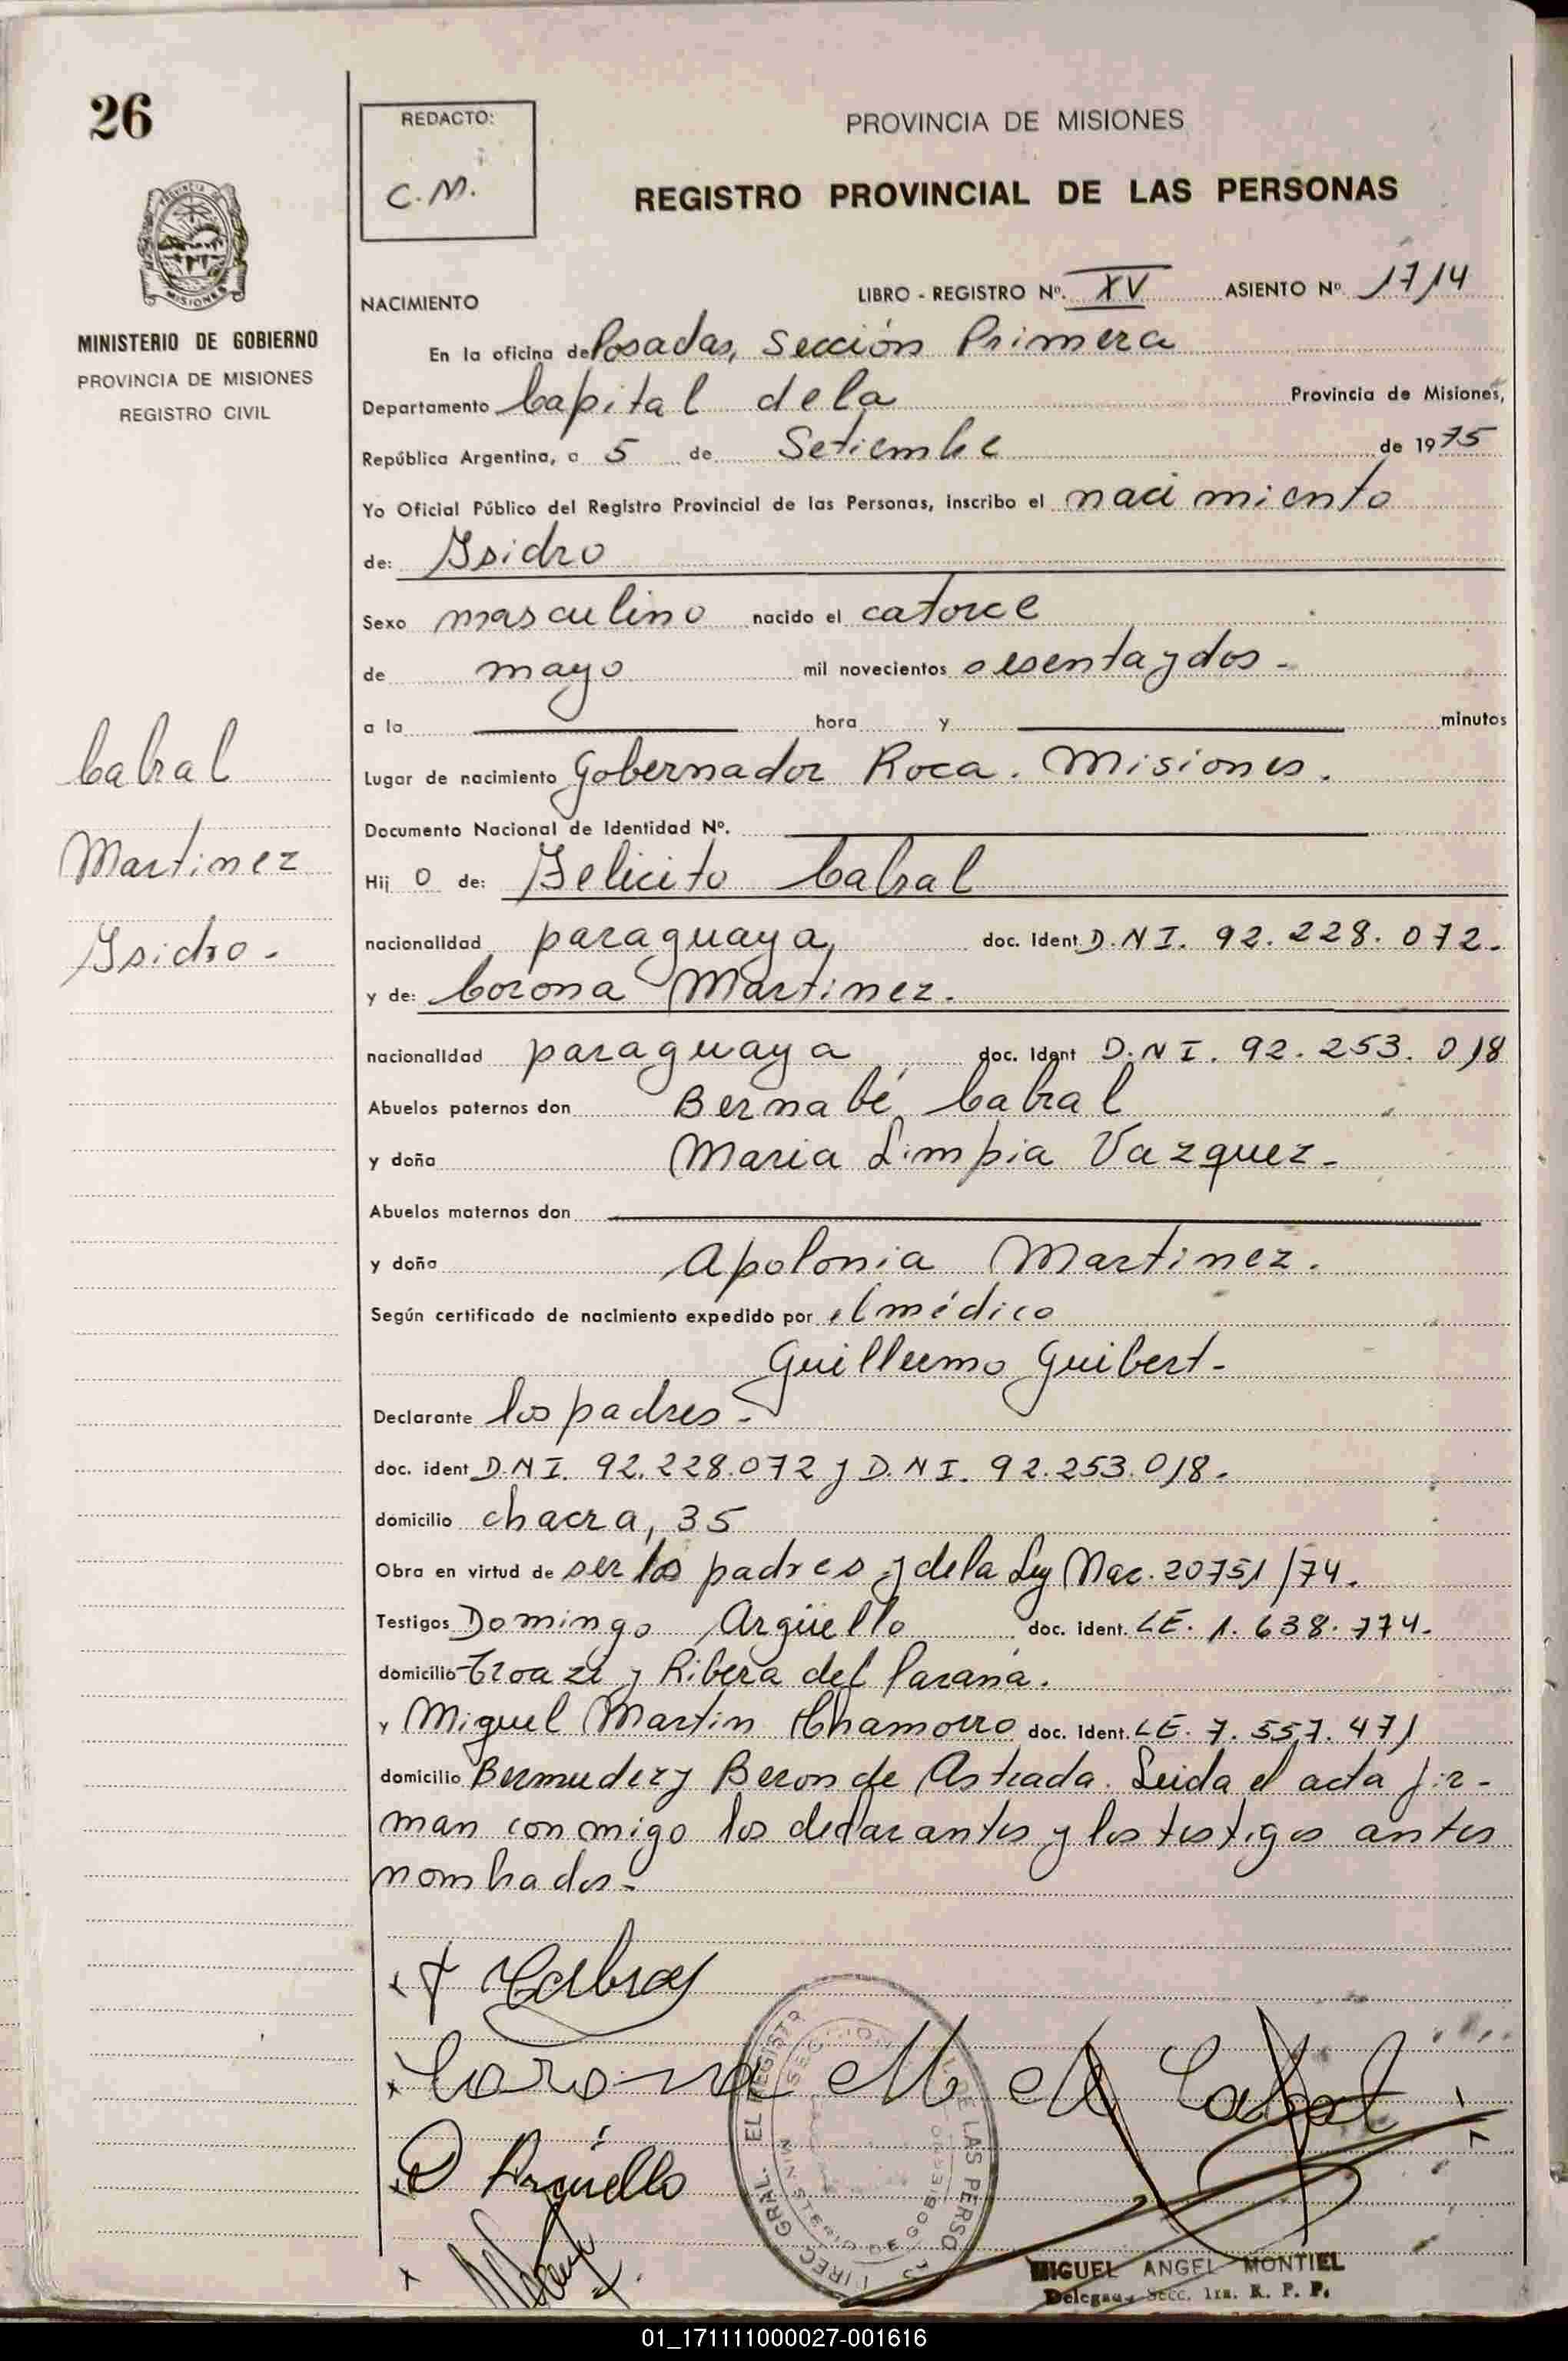 26
REDACTO:
C.M.
PROVINCIA DE MISIONES
REGISTRO PROVINCIAL DE LAS PERSONAS
MISIONES
MINISTERIO DE GOBIERNO
PROVINCIA DE MISIONES
REGISTRO CIVIL
NACIMIENTO
LIBRO - REGISTRO Nº. XV ASIENTO Nº 1714
En la oficina de Posadas, Sección Primera
Departamento Capital de la Provincia de Misiones,
República Argentina, a 5 de Setiembre de 1975
Yo Oficial Público del Registro Provincial de las Personas, inscribo el nacimiento
de: Isidro
Sexo masculino nacido el catorce
de mayo mil novecientos sesenta y dos -
a la hora y minutos
Lugar de nacimiento Gobernador Roca. Misiones.
Documento Nacional de Identidad Nº.
Cabral
Martinez
Isidro -
Hij o de: Felicito Cabral
nacionalidad paraguaya, doc. Ident D.N I. 92. 228. 072.
y de: Corona Martinez.
nacionalidad paraguaya doc. Ident D.N I. 92. 253. 018
Abuelos paternos don Bernabé Cabral
y doña Maria Limpia Vazquez -
Abuelos maternos don
y doña Apolonia Martinez.
Según certificado de nacimiento expedido por el médico
Guillermo Guibert -
Declarante los padres -
doc. ident D.N I. 92. 228.072 y D.N I. 92.253.018.
domicilio chacra, 35
Obra en virtud de ser los padres y de la Ley Nac. 20751/74.
Testigos Domingo Argüello doc. ident. LE. 1. 638. 774.
domicilio y Ribera del Parana.
y Miguel Martin Chamorro doc. ident. LE. 7. 557. 471
domicilio Bermudez y Beron de Astrada. Leida el acta fir-
man conmigo los declarantes y los testigos antes
nombrados -
x F Cabral
x Corona M de Cabral
x D Argüello
x
EL REGISTR LAS PERSO
MINISTERIO DE GOBIERNO
MIGUEL ANGEL MONTIEL
Secc. 1ra. R. P. P.
01_171111000027-001616